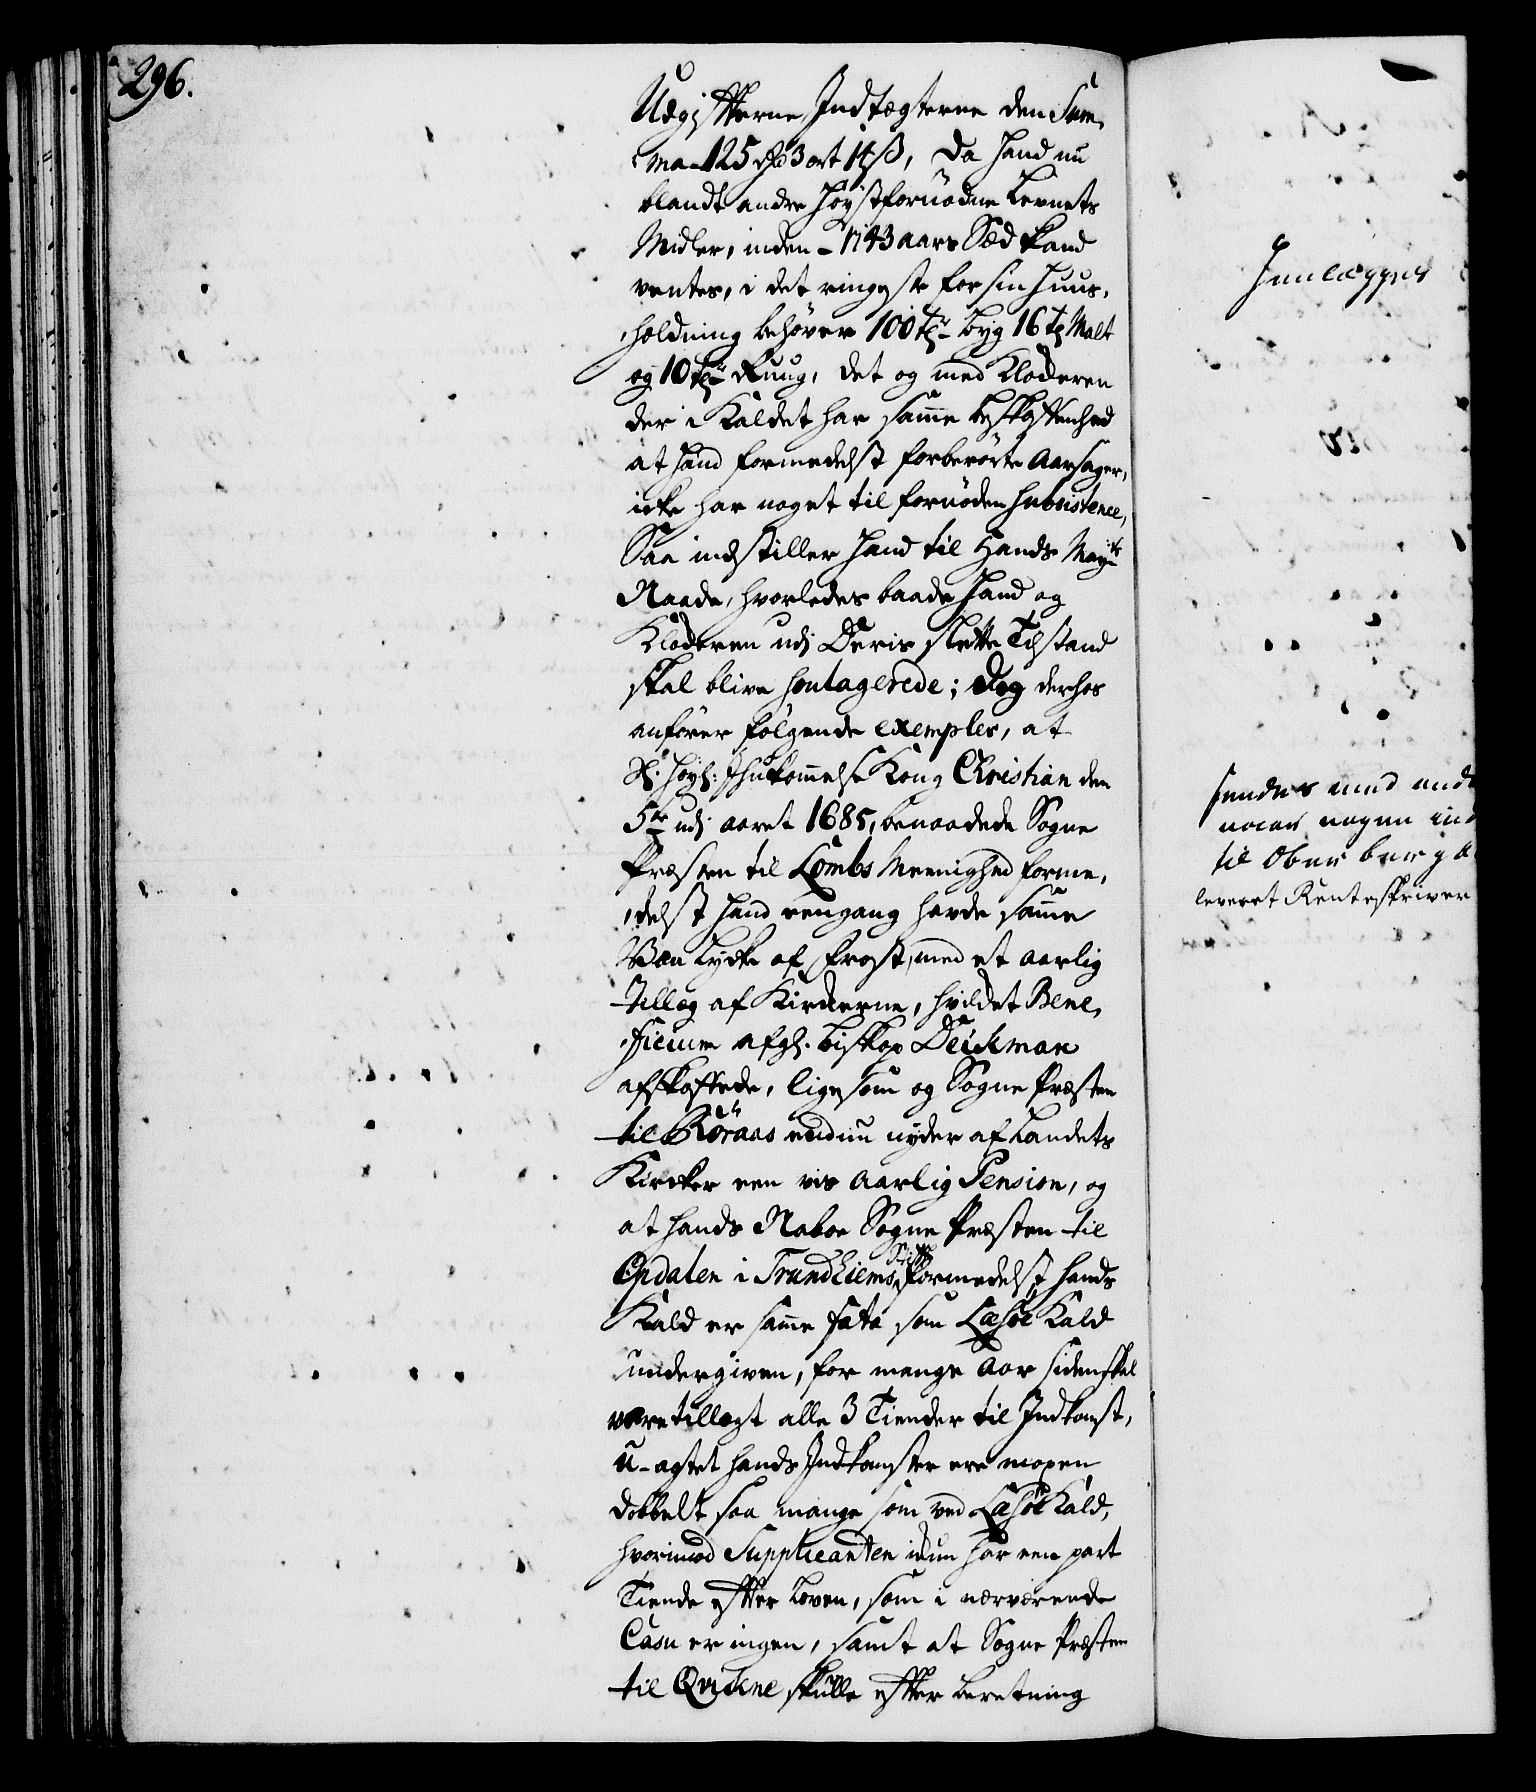 296.
Udgifterne Indtægterne den Sum-
ma 125 rd 3 ort 14 ß, da hand nu
blandt andre høystfornødne Levnets
Midler, inden 1743 aars Sæd kand
ventes, i det ringeste for sin Huus-
holdning behøver 100 tr Byg 16 tr Malt
og 10 tr Ruug, det og med Klockeren
der i Kaldet har samme beskaffenhed
at hand formedelst forberørte Aarsager,
icke har noget til fornøden Subsistence,
Saa indstiller hand til Hands Mayts
Naade, hvorledes baade hand og
Klockeren udj Deris slette Tilstand
skal blive soulagerede; dog derhos
anfører følgende exempler, at
Sl: Høyl: Ihukommelse Kong Christian den
5te udj aaret 1685, benaadede Sogne
Præsten til Lombs Meenighed forme-
delst hand eengang havde samme
Van Lycke af frost, med et aarlig
Tillæg af Kirckerne, hvilcket Bene-
ficium afgl. Biskop Deickman
afskaffede, ligesom og Sogne Præsten
til Röraas endnu nyder af Landets
Kircker een vis aarlig Pension, og
at hands Naboe Sogne Præsten til
Opdalen i Trundhiems Stift formedelst hands
Kald er samme fata som Læsöe Kald
undergiven, for mange Aar siden skal
være tillagt alle 3 Tiender til Indkomst,
u-agtet hands Indkomster ere moxen
dobbelt saa mange som ved Læsöe Kald,
hvorimod Supplicanten icun har een part
Tiende efter Loven, som i nærværende
Casu er ingen, samt at Sogne Præsten
til Qvikne skulle efter beretning
Indlægges
sendes med
nogen
til Ober berg
leveret Renteskriver